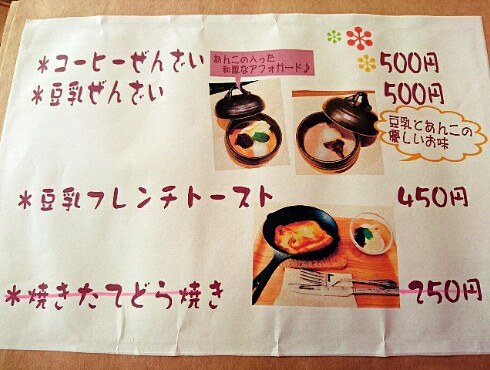 *コーヒーぜんざい 500円
あんこの入った
和風なアフォガード♪
*豆乳ぜんざい 500円
豆乳とあんこの
優しいお味
*豆乳フレンチトースト 450円
*焼きたてどら焼き 250円